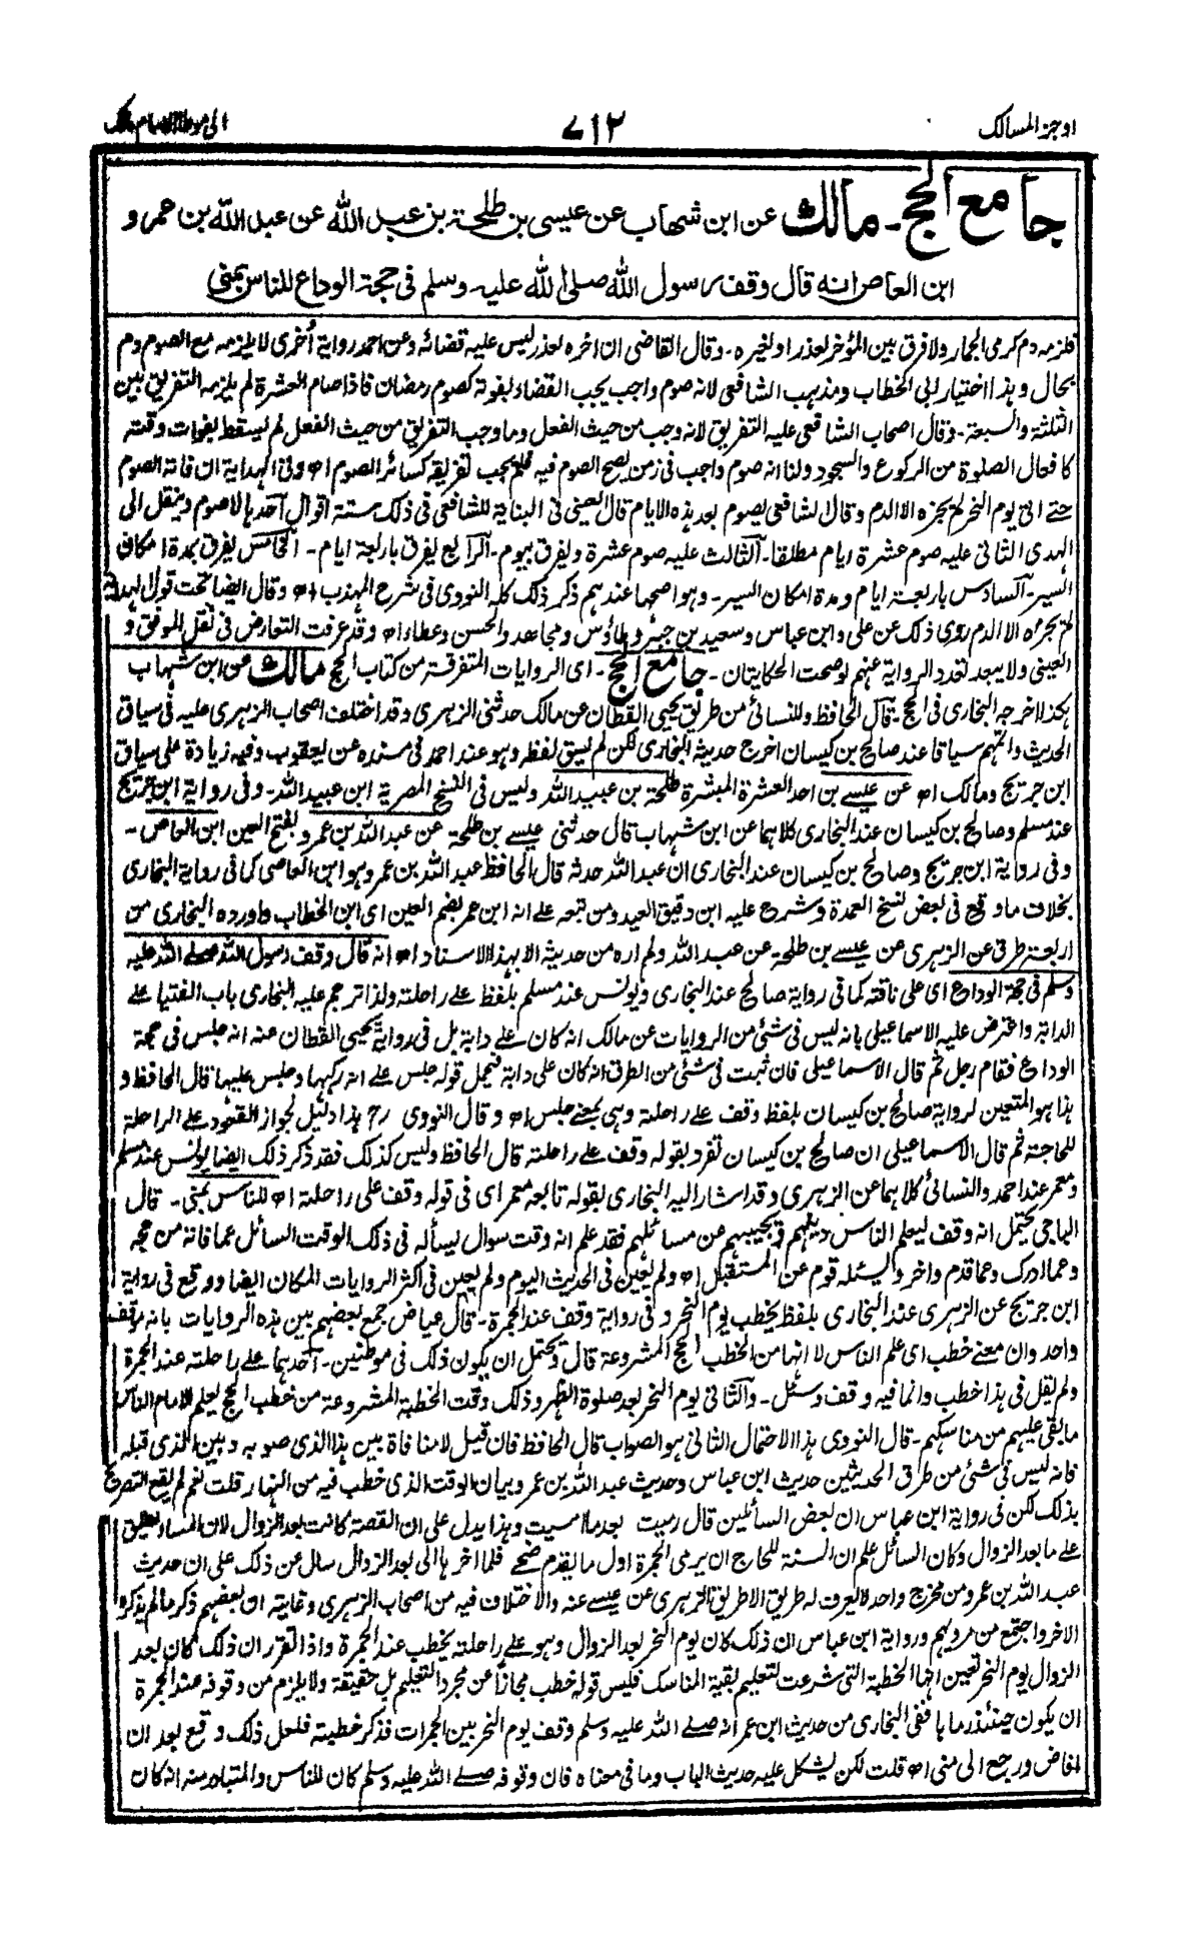 اوجز المسالك
٧١٢
الى موطا الامام مالك
جامع الحج ـ مالك عن ابن شهاب عن عيسى بن طلحة بن عبد الله عن عبد الله بن عمرو
ابن العاص انه قال وقف رسول الله صلى الله عليه وسلم فى حجة الوداع للناس بمنى
فلزمه دم كرمى الجمار ولا فرق بين المؤخر لعذر او لغيره ـ وقال القاضى ان اخره لعذر ليس عليه قضائه وعن احمد رواية أخرى لا يلزمه مع الصوم دم
بحال وهذا اختيار ابى الخطاب ومذهب الشافعى لانه صوم واجب يجب القضاء بفوته كصوم رمضان فاذا صام العشرة لم يلزمه التفريق بين
الثلثة والسبعة ـ وقال اصحاب الشافعى عليه التفريق لانه وجب من حيث الفعل وما وجب التفريق من حيث الفعل لم يسقط بفوات وقته
كافعال الصلوة من الركوع والسجود ولنا انه صوم واجب فى زمن يصح الصوم فيه فلم يجب تفريقه كسائر الصوم اھ وفى الهداية ان فاته الصوم
حتے اتى يوم النحر لم يجزه الا الدم وقال الشافعى يصوم بعد هذه الايام قال العينى فى البناية للشافعى فى ذلك ستة اقوال آحدها لا صوم وينقل الى
الهدى الثانى عليه صوم عشرة ايام مطلقا ـ آلثالث عليه صوم عشرة ويفرق بيوم ـ آلرابع يفرق باربعة ايام ـ آلخامس يفرق بمدة امكان
السير ـ آلسادس باربعة ايام ومدة امكان السير ـ وهو اصحها عندهم ذكر ذلك كله النووى فى شرح المهذب اھ وقال ايضا تحت قول الهداية
لم يجزه الا الدم روى ذلك عن على وابن عباس وسعيد بن جبير وطاؤس ومجاهد والحسن وعطاء اھ وقد عرفت التعارض فى نقل الموفق و
العينى ولا يبعد لتعدد الرواية عنهم لو صحت الحكايتان ـ جامع الحج ـ اى الروايات المتفرقة من كتاب الحج مالك عن ابن شهاب
هكذا اخرجه البخارى فى الحج ـ قال الحافظ وللنسائى من طريق يحيى القطان عن مالك حدثنى الزهرى وقد اختلف اصحاب الزهرى عليه فى سياق
الحديث واتمهم سياقا عند صالح بن كيسان اخرج حديثه البخارى لكن لم يسق لفظه وهو عند احمد فى مسنده عن يعقوب وفيه زيادة على سياق
ابن جريج ومالك اھ عن عيسے بن احد العشرة المبشرة طلحة بن عبيد الله وليس فى النسخ المصرية ابن عبيد الله ـ وفى رواية ابن جريج
عند مسلم وصالح بن كيسان عند البخارى كلاهما عن ابن شهاب قال حدثنى عيسے بن طلحة عن عبد الله بن عمرو بفتح العين ابن العاص ـ
وفى رواية ابن جريج وصالح بن كيسان عند البخارى ان عبد الله حدثه قال الحافظ عبد الله بن عمرو هو ابن العاصى كما فى رواية البخارى
بخلاف ما وقع فى بعض نسخ العمدة وشرح عليه ابن دقيق العيد ومن تبعه علے انه ابن عمر بضم العين اى ابن الخطاب واورده البخارى من
اربعة طرق عن الزهرى عن عيسے بن طلحة عن عبد الله ولم اره من حديثه الا بهذا الاسناد اھ انه قال وقف رسول الله صلے الله عليه
وسلم فى حجة الوداع اى على ناقته كما فى رواية صالح عند البخارى ويونس عند مسلم بلفظ علے راحلته ولذا ترجم عليه البخارى باب الفتيا علے
الدابة واعترض عليه الاسماعيلى بانه ليس فى شئ من الروايات عن مالك انه كان علے دابة بل فى رواية يحيى القطان عنه انه جلس فى حجة
الوداع فقام رجل ثم قال الاسماعيلى فان ثبت فى شئ من الطرق انه كان على دابة فيحمل قوله جلس علے انه ركبها وجلس عليها قال الحافظ و
هذا هو المتعين لرواية صالح بن كيسان بلفظ وقف علے راحلته وهى بمعنے جلس اھ وقال النووى رح هذا دليل لجواز القعود علے الراحلة
للحاجة ثم قال الاسماعيلى ان صالح بن كيسان تفرد بقوله وقف علے راحلته قال الحافظ وليس كذلك فقد ذكر ذلك ايضا يونس عند مسلم
ومعمر عند احمد والنسائى كلاهما عن الزهرى وقد اشار اليه البخارى بقوله تابعه معمر اى فى قوله وقف على راحلته اھ للناس بمنى ـ قال
الباجى يحتمل انه وقف ليعلم الناس دينهم ويجيبهم عن مسائلهم فقد علم انه وقت سوال يسأله فى ذلك الوقت السائل عما فاته من حجه
وعما ادرك وعما قدم واخر ويسئله قوم عن المستقبل اھ ولم يعين فى الحديث اليوم ولم يعين فى اكثر الروايات المكان ايضا ووقع فى رواية
ابن جريج عن الزهرى عند البخارى بلفظ يخطب يوم النحر وفى رواية وقف عند الجمرة ـ قال عياض جمع بعضهم بين هذه الروايات بانه موقف
واحد وان معنے خطب اى علم الناس لا انها من الخطب الحج المشروعة قال ويحتمل ان يكون ذلك فى موطنين ـ آحدهما علے راحلته عند الجمرة
ولم يقل فى هذا خطب وانما فيه وقف وسئل ـ وآلثانى يوم النحر بعد صلوة الظهر وذلك وقت الخطبة المشروعة من خطب الحج يعلم الامام الناس
ما بقى عليهم من مناسكهم ـ قال النووى هذا الاحتمال الثانى هو الصواب قال الحافظ فان قيل لا منافاة بين هذا الذى صوبه وبين الذى قبله
فانه ليس فى شئ من طرق الحديثين حديث ابن عباس وحديث عبد الله بن عمرو بيان الوقت الذى خطب فيه من النهار قلت نعم لم يقع التصريح
بذلك لكن فى رواية ابن عباس ان بعض السائلين قال رميت بعد ما امسيت وهذا يدل على ان القصة كانت بعد الزوال لان المساء يطلق
علے ما بعد الزوال وكان السائل علم ان السنة للحاج ان يرمى الجمرة اول ما يقدم ضحے فلما اخرها الى بعد الزوال سال عن ذلك على ان حديث
عبد الله بن عمرو من مخرج واحد لا يعرف له طريق الا طريق الزهرى عن عيسے عنه والاختلاف فيه من اصحاب الزهرى وغايته ان بعضهم ذكر ما لم يذكره
الآخر واجتمع من مرويهم ورواية ابن عباس ان ذلك كان يوم النحر بعد الزوال وهو علے راحلته يخطب عند الجمرة واذا تقرر ان ذلك كان بعد
الزوال يوم النحر تعين انها الخطبة التى شرعت لتعليم بقية المناسك فليس قوله خطب مجازا عن مجرد التعليم بل حقيقة ولا يلزم من وقوفه عند الجمرة
ان يكون حينئذ رماها ففى البخارى من حديث ابن عمر انه صلے الله عليه وسلم وقف يوم النحر بين الجمرات فذكر خطبته فلعل ذلك وقع بعد ان
افاض ورجع الى منى اھ قلت لكن يشكل عليه حديث الباب وما فى معناه فان وقوفه صلے الله عليه وسلم كان للناس والمتبادر منه انه كان